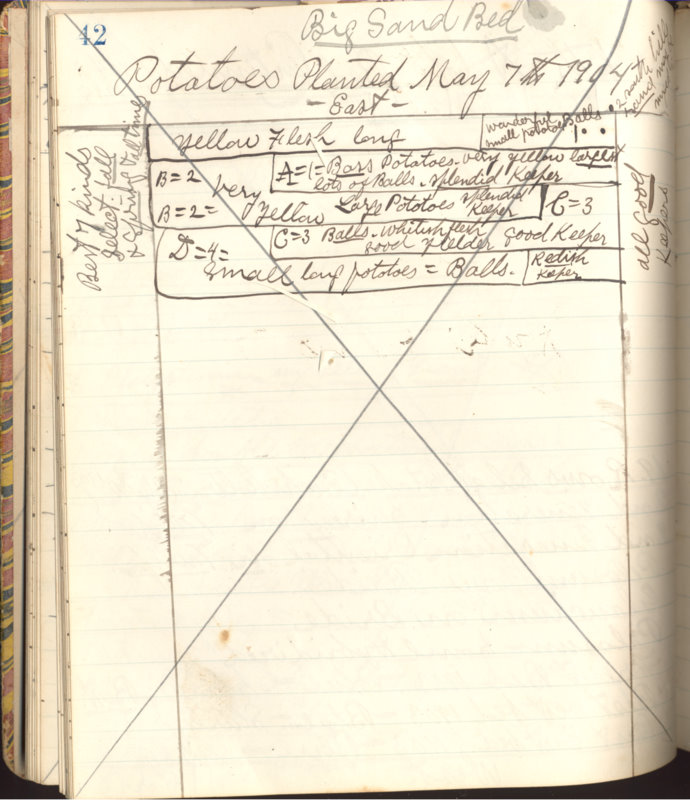 42
Big Sand Bed
Potatoes Planted May 7th 1904
- East -
Best 7 kinds
Select fall
& Spring
yellow Flesh long
wonderful Balls
small potatoes
A=1= Bars Potatoes. very yellow largest
lots of Balls. splendid Keeper
B=2
very
B=2= yellow Large Potatoes splendid
Keeper
C=3
C=3 Balls. Whitish flesh
good yielder good Keeper
D=4=
Small long potatoes = Balls.
Redish
Keeper
all good
Keepers
2 south hills